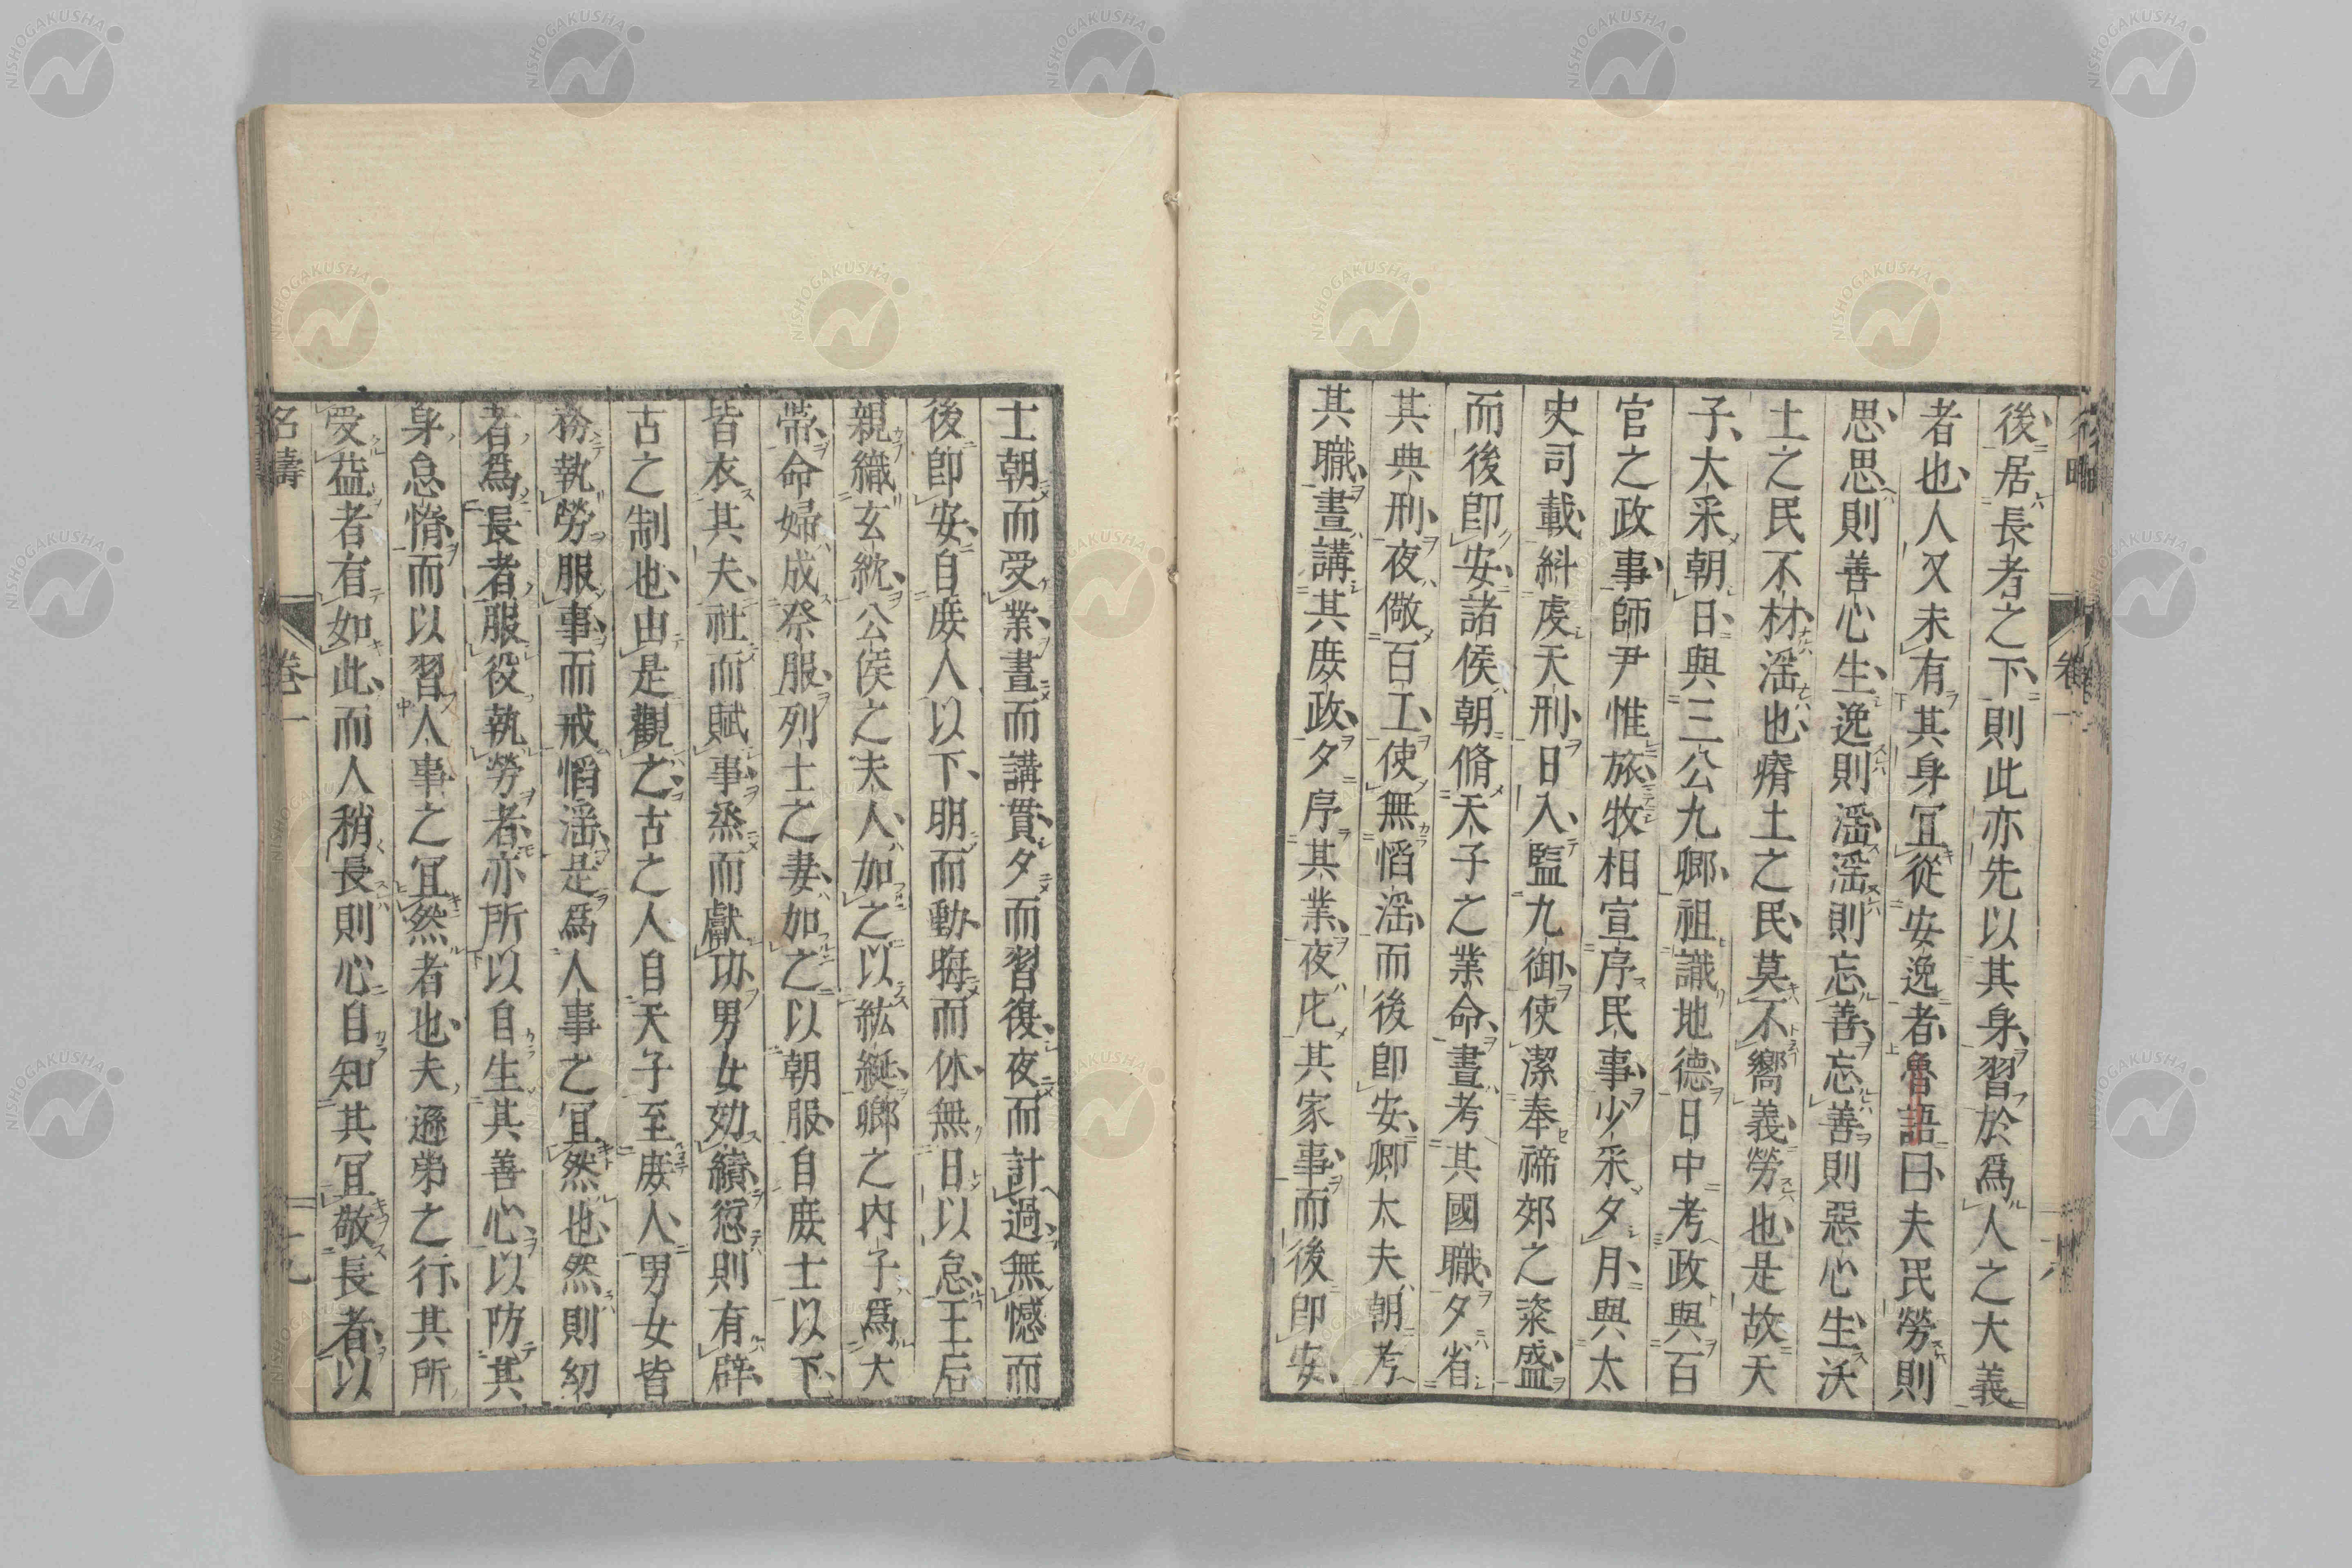 後居長者之下則此亦先以其身習於爲人之大義
者也人又未有其身冝從安逸者魯語曰夫民勞則
思思則善心生逸則滛滛則忘善忘善則惡心生沃
土之民不材滛也瘠土之民莫不嚮義勞也是故天
子大采朝日與三公九卿祖識地德日中考政與百
官之政事師尹惟旅牧相宣序民事少采夕月與太
史司載糾虔天刑日入監九御使潔奉禘郊之粢盛
而後卽安諸侯朝脩天子之業命晝考其國職夕省
其典刑夜儆百工使無慆滛而後卽安卿大夫朝考
其職晝講其庶政夕序其業夜庀其家事而後卽安
士朝而受業晝而講貫夕而習復夜而計過無憾而
後卽安自庶人以下明而動晦而休無日以怠王后
親織玄紞公侯之夫人加之以紘綖卿之内子爲大
帶命婦成祭服列士之妻加之以朝服自庶士以下
皆衣其夫社而賦事烝而獻功男女効績愆則有辟
古之制也由是觀之古之人自天子至庶人男女皆
務執勞服事而戒慆滛是爲人事之冝然也然則幼
者爲長者服役執勞者亦所以自生其善心以防其
身怠惰而以習人事之冝然者也夫遜弟之行其所
受益者有如此而人稍長則心自知其冝敬長者以
名疇 卷一